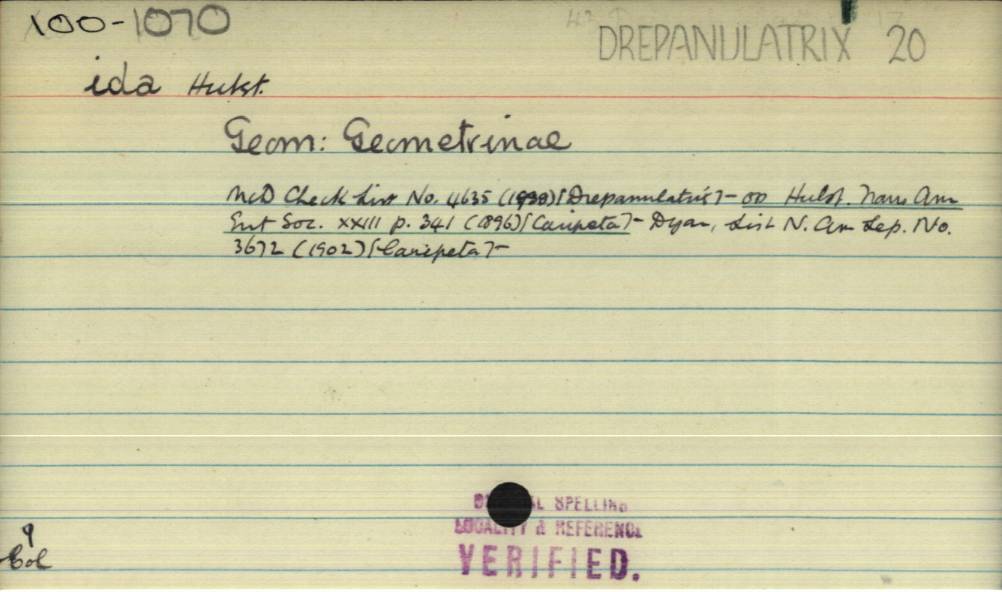 100-1070
DREPANULATRIX 20
ida Hulst.
Geom: Geometrinae
McD Check List No. 4635 (1938) [Drepanulatrix] - OD Hulst. Trans Am
Ent Soc. XXIII p. 341 (1896) [Caripeta] - Dyar, List N. Am Lep. No.
3672 (1902) [Caripeta] -
SPELLING
LOCALITY & REFERENCE
VERIFIED.
♀
Col